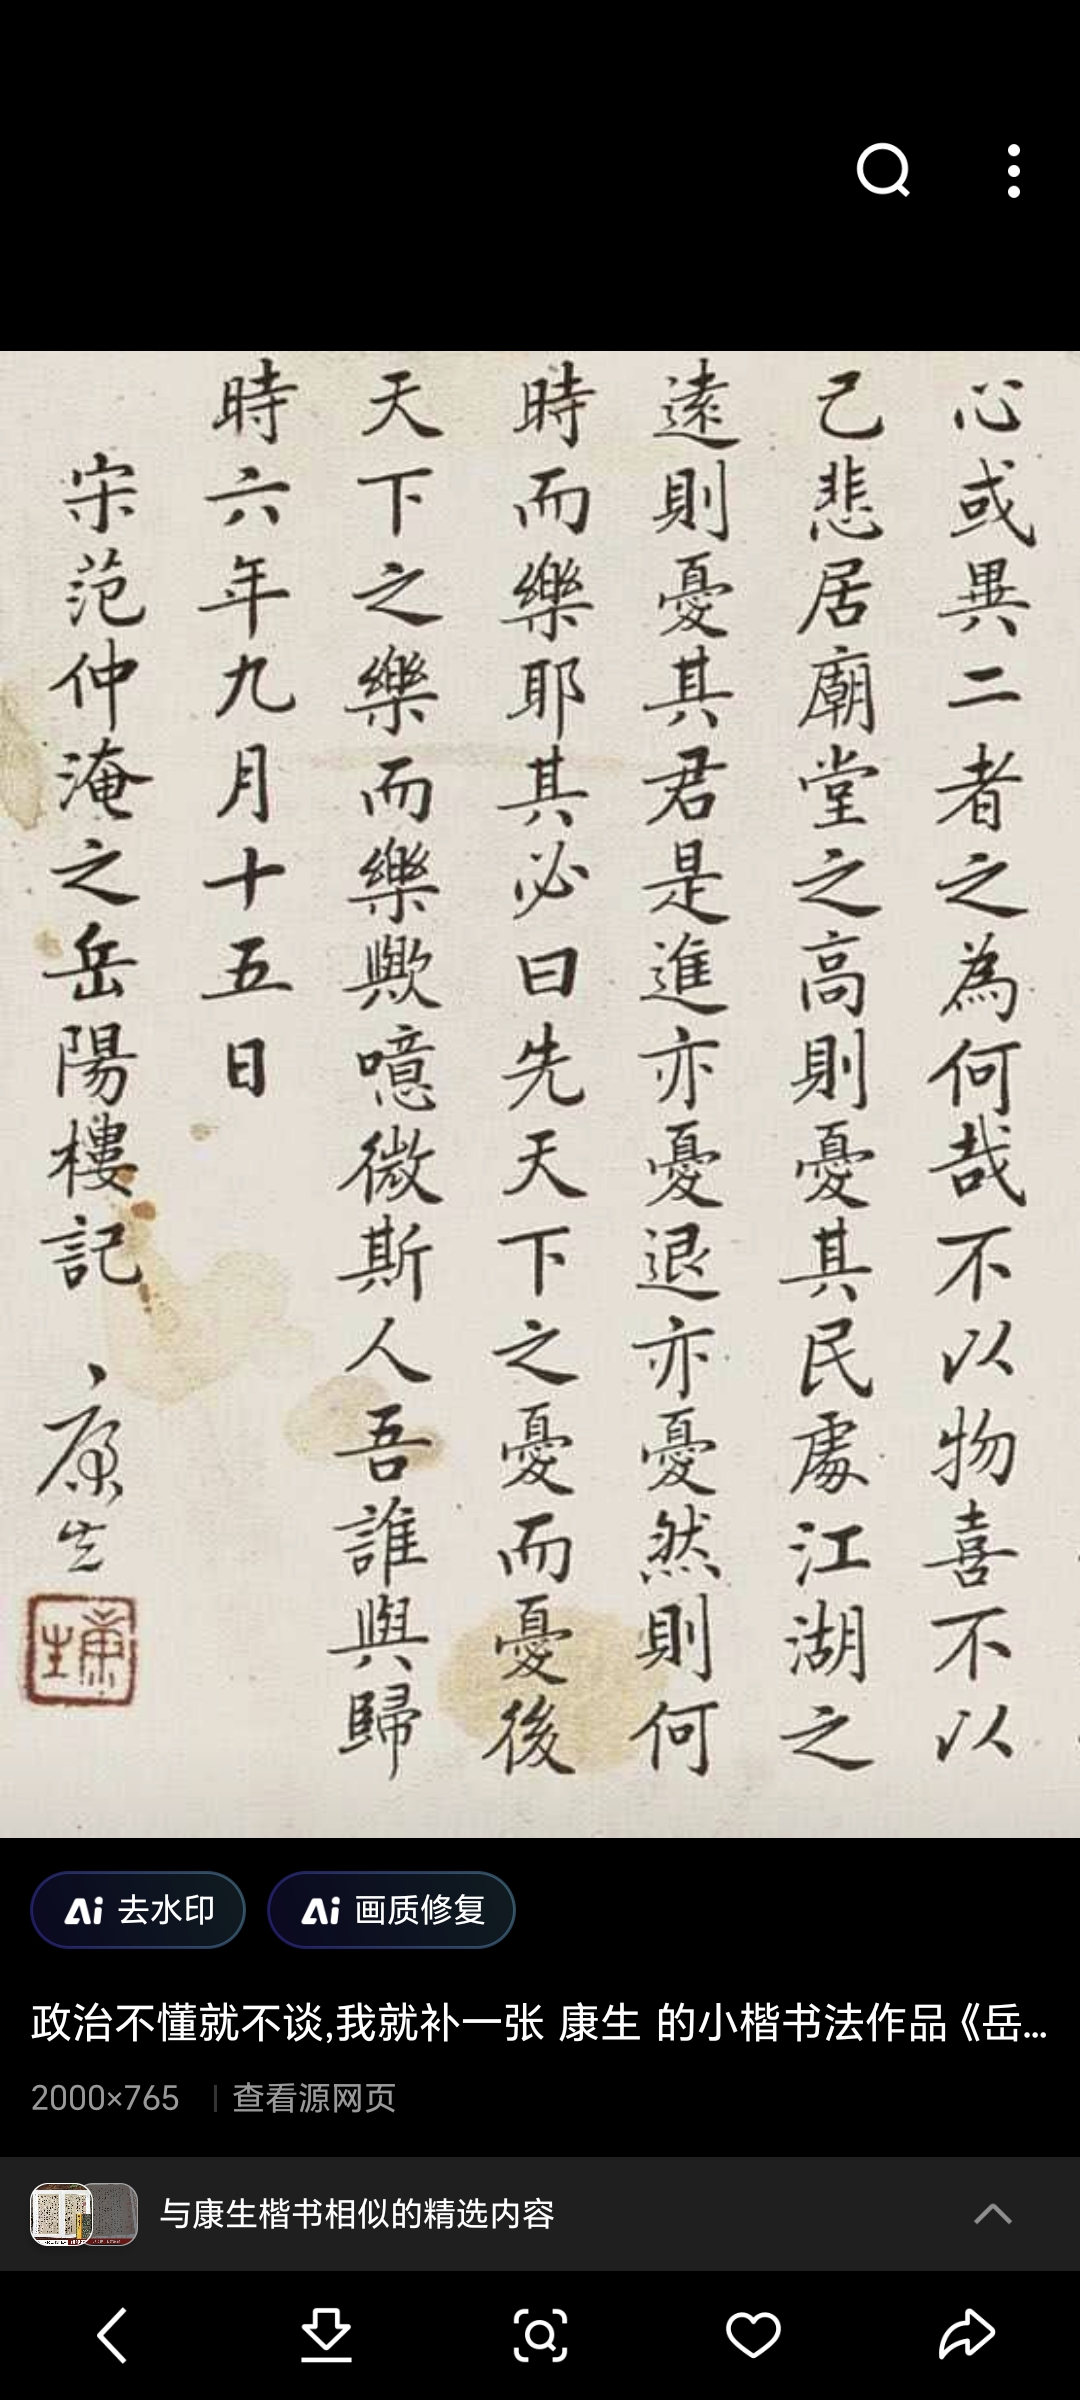 心或異二者之為何哉不以物喜不以
己悲居廟堂之高則憂其民處江湖之
遠則憂其君是進亦憂退亦憂然則何
時而樂耶其必曰先天下之憂而憂後
天下之樂而樂歟噫微斯人吾誰與歸
時六年九月十五日
宋范仲淹之岳陽樓記
康生
康生
Ai 去水印
Ai 画质修复
政治不懂就不谈,我就补一张 康生 的小楷书法作品《岳...
2000×765 | 查看源网页
与康生楷书相似的精选内容